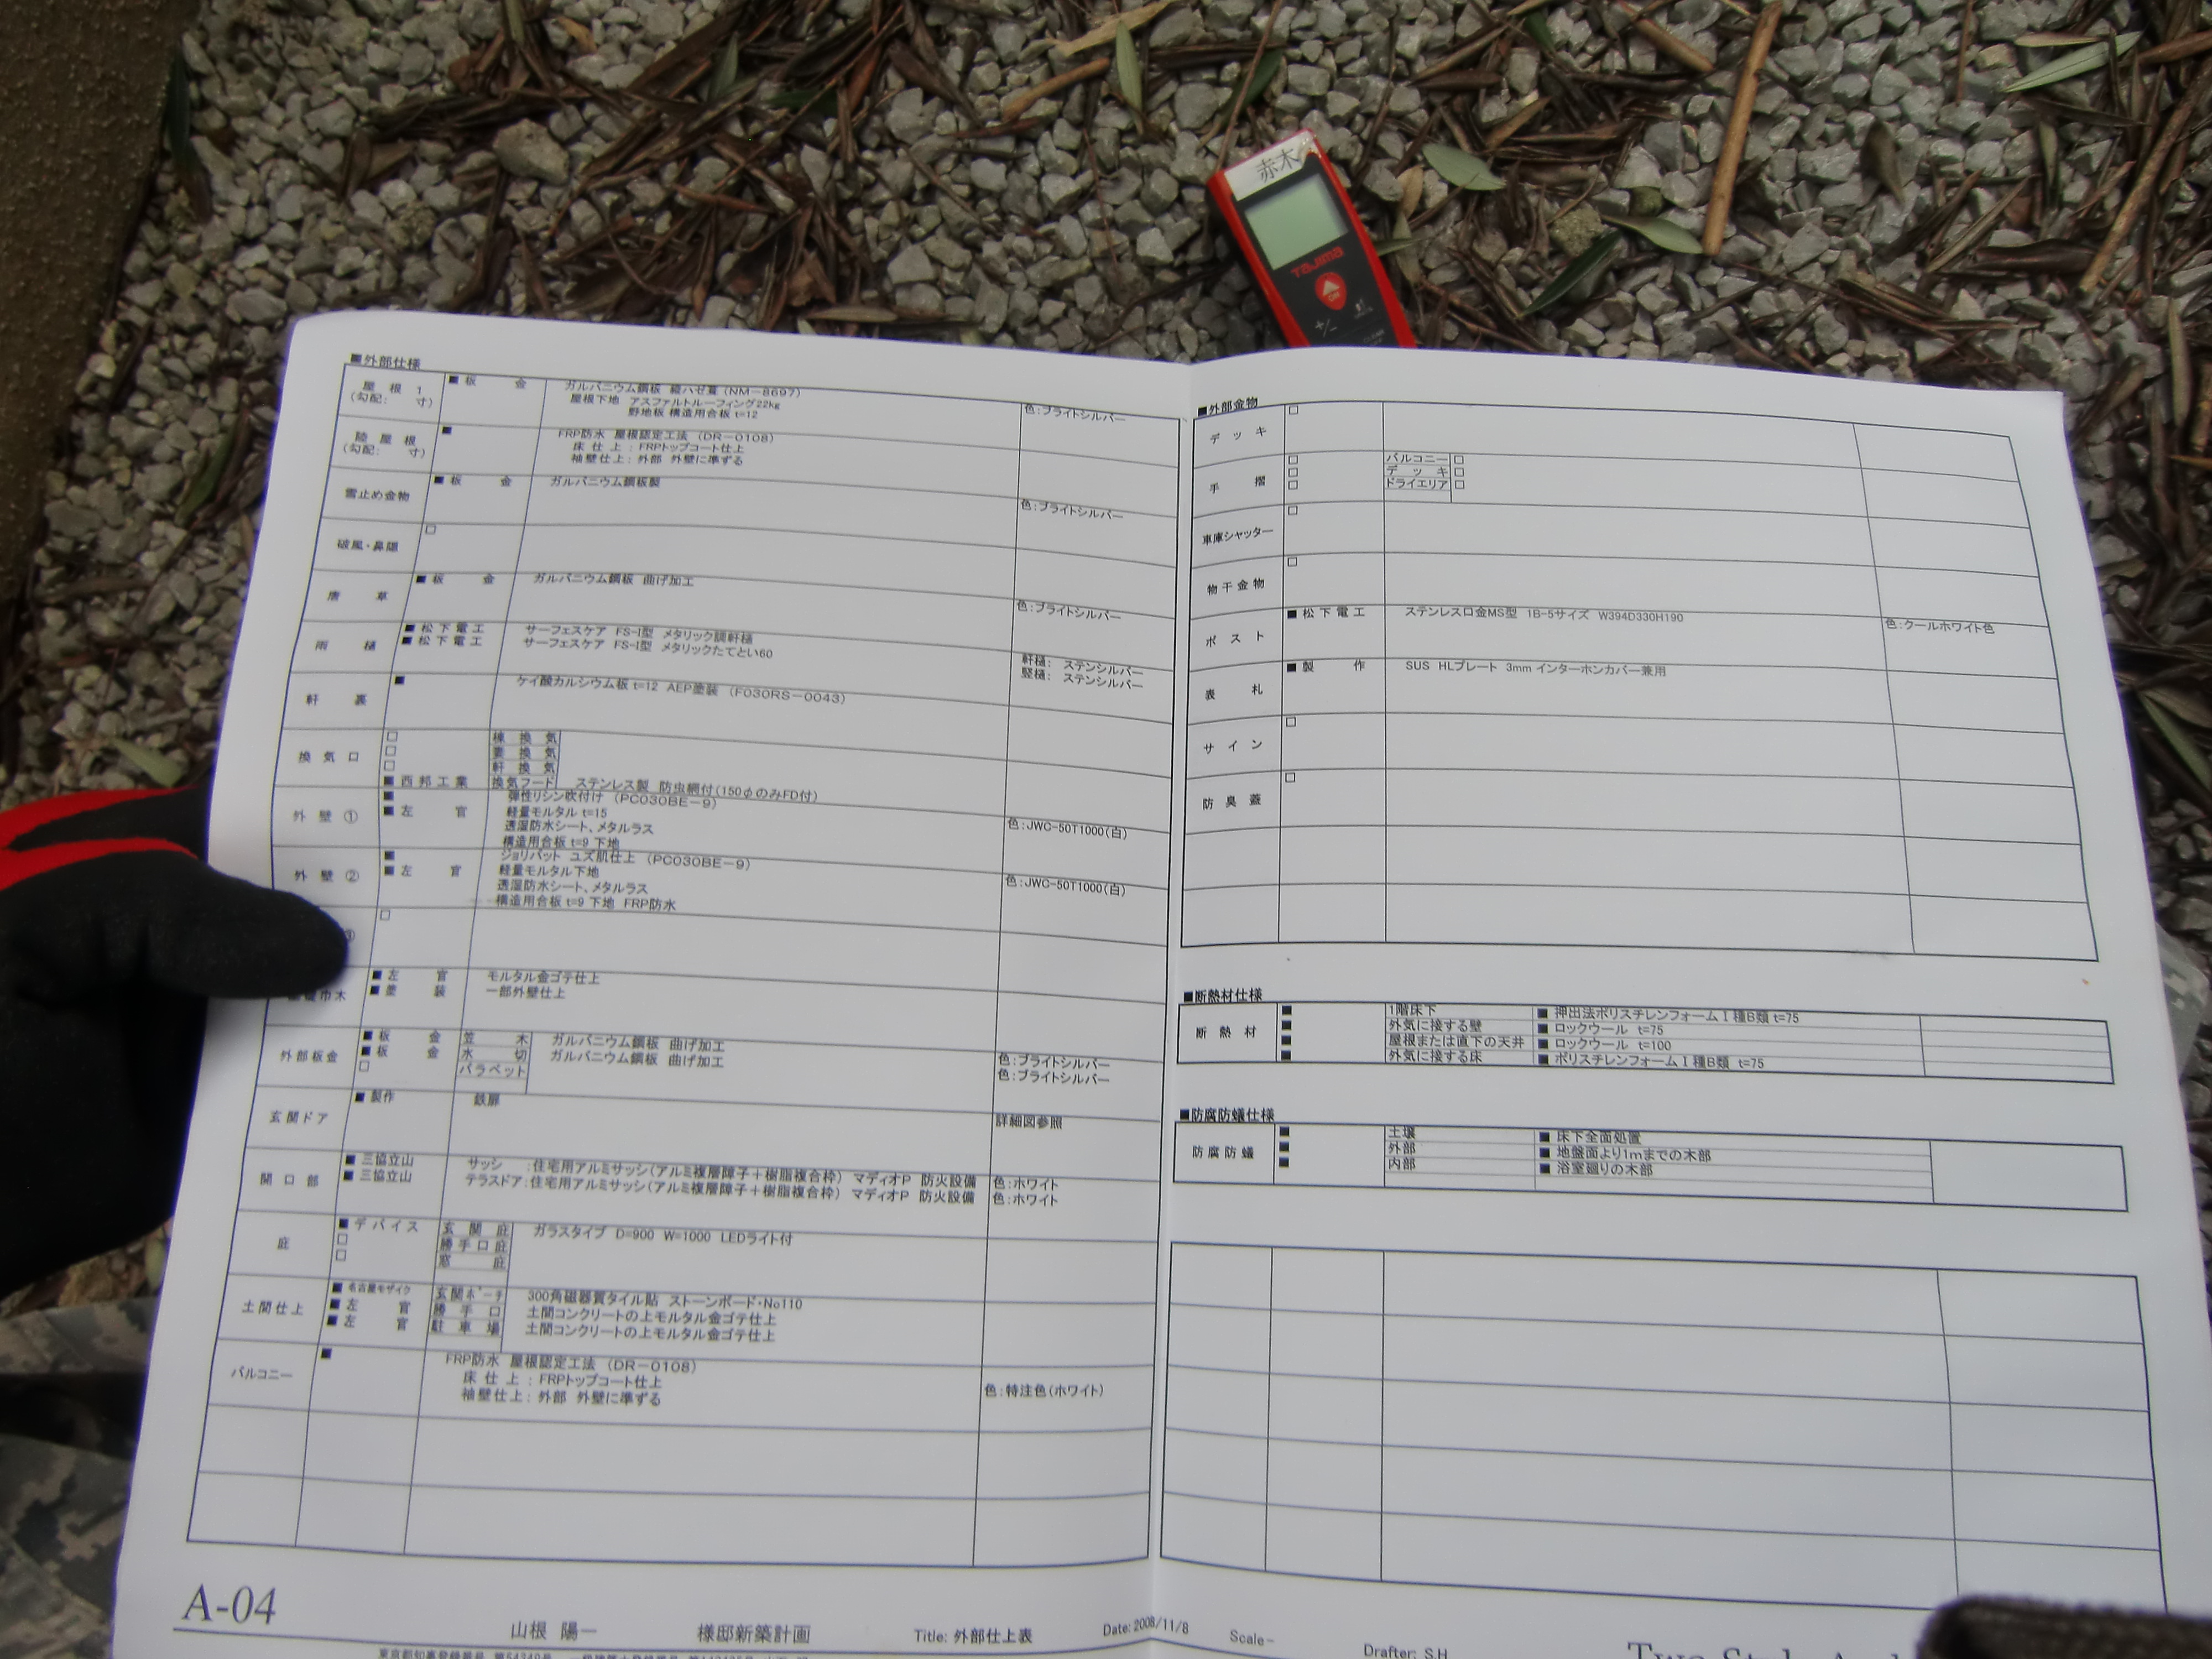 赤木
Tajima
ON
+/-
■外部仕様
屋根1
(勾配: 寸)
■板金
ガルバニウム鋼板 縦ハゼ葺 (NM-8697)
屋根下地 アスファルトルーフィング22kg
野地板 構造用合板 t=12
色:ブライトシルバー
陸屋根
(勾配: 寸)
■
FRP防水 屋根認定工法 (DR-0108)
床仕上:FRPトップコート仕上
袖壁仕上:外部 外壁に準ずる
雪止め金物
■板金
ガルバニウム鋼板製
色:ブライトシルバー
破風・鼻隠
□
唐草
■板金
ガルバニウム鋼板 曲げ加工
色:ブライトシルバー
雨樋
■松下電工
サーフェスケア FS-I型 メタリック調軒樋
■松下電工
サーフェスケア FS-I型 メタリックたてとい60
軒樋: ステンシルバー
竪樋: ステンシルバー
軒裏
■
ケイ酸カルシウム板 t=12 AEP塗装 (F030RS-0043)
換気口
□ 棟換気
□ 妻換気
□ 軒換気
■西邦工業 換気フード ステンレス製 防虫網付(150φのみFD付)
外壁①
■ 弾性リシン吹付け (PC030BE-9)
■左官 軽量モルタル t=15
透湿防水シート、メタルラス
構造用合板 t=9 下地
色:JWC-50T1000(白)
外壁②
■ ジョリパット ユズ肌仕上 (PC030BE-9)
■左官 軽量モルタル下地
透湿防水シート、メタルラス
構造用合板 t=9 下地 FRP防水
色:JWC-50T1000(白)
③
□
巾木
■左官 モルタル金ゴテ仕上
■塗装 一部外壁仕上
外部板金
■板金 笠木 ガルバニウム鋼板 曲げ加工
■板金 水切 ガルバニウム鋼板 曲げ加工
□ パラペット
色:ブライトシルバー
色:ブライトシルバー
玄関ドア
■製作 鉄扉
詳細図参照
開口部
■三協立山 サッシ :住宅用アルミサッシ(アルミ複層障子+樹脂複合枠) マディオP 防火設備 色:ホワイト
■三協立山 テラスドア:住宅用アルミサッシ(アルミ複層障子+樹脂複合枠) マディオP 防火設備 色:ホワイト
庇
■デバイス 玄関庇 ガラスタイプ D=900 W=1000 LEDライト付
□ 勝手口庇
□ 窓庇
土間仕上
■名古屋モザイク 玄関ポーチ 300角磁器質タイル貼 ストーンボード・No110
■左官 勝手口 土間コンクリートの上モルタル金ゴテ仕上
■左官 駐車場 土間コンクリートの上モルタル金ゴテ仕上
バルコニー
■
FRP防水 屋根認定工法 (DR-0108)
床仕上:FRPトップコート仕上
袖壁仕上:外部 外壁に準ずる
色:特注色(ホワイト)
■外部金物
デッキ
□
手摺
□ バルコニー □
□ デッキ □
□ ドライエリア □
車庫シャッター
□
物干金物
□
ポスト
■松下電工 ステンレス口金MS型 1B-5サイズ W394D330H190
色:クールホワイト色
表札
■製作 SUS HLプレート 3mm インターホンカバー兼用
サイン
□
防臭蓋
□
■断熱材仕様
断熱材
■ 1階床下 ■押出法ポリスチレンフォームⅠ種B類 t=75
■ 外気に接する壁 ■ロックウール t=75
■ 屋根または直下の天井 ■ロックウール t=100
■ 外気に接する床 ■ポリスチレンフォームⅠ種B類 t=75
■防腐防蟻仕様
防腐防蟻
■ 土壌 ■床下全面処置
■ 外部 ■地盤面より1mまでの木部
■ 内部 ■浴室廻りの木部
A-04
山根 陽一 様邸新築計画
Title: 外部仕上表
Date: 2008/11/8
Scale-
Drafter: S.H